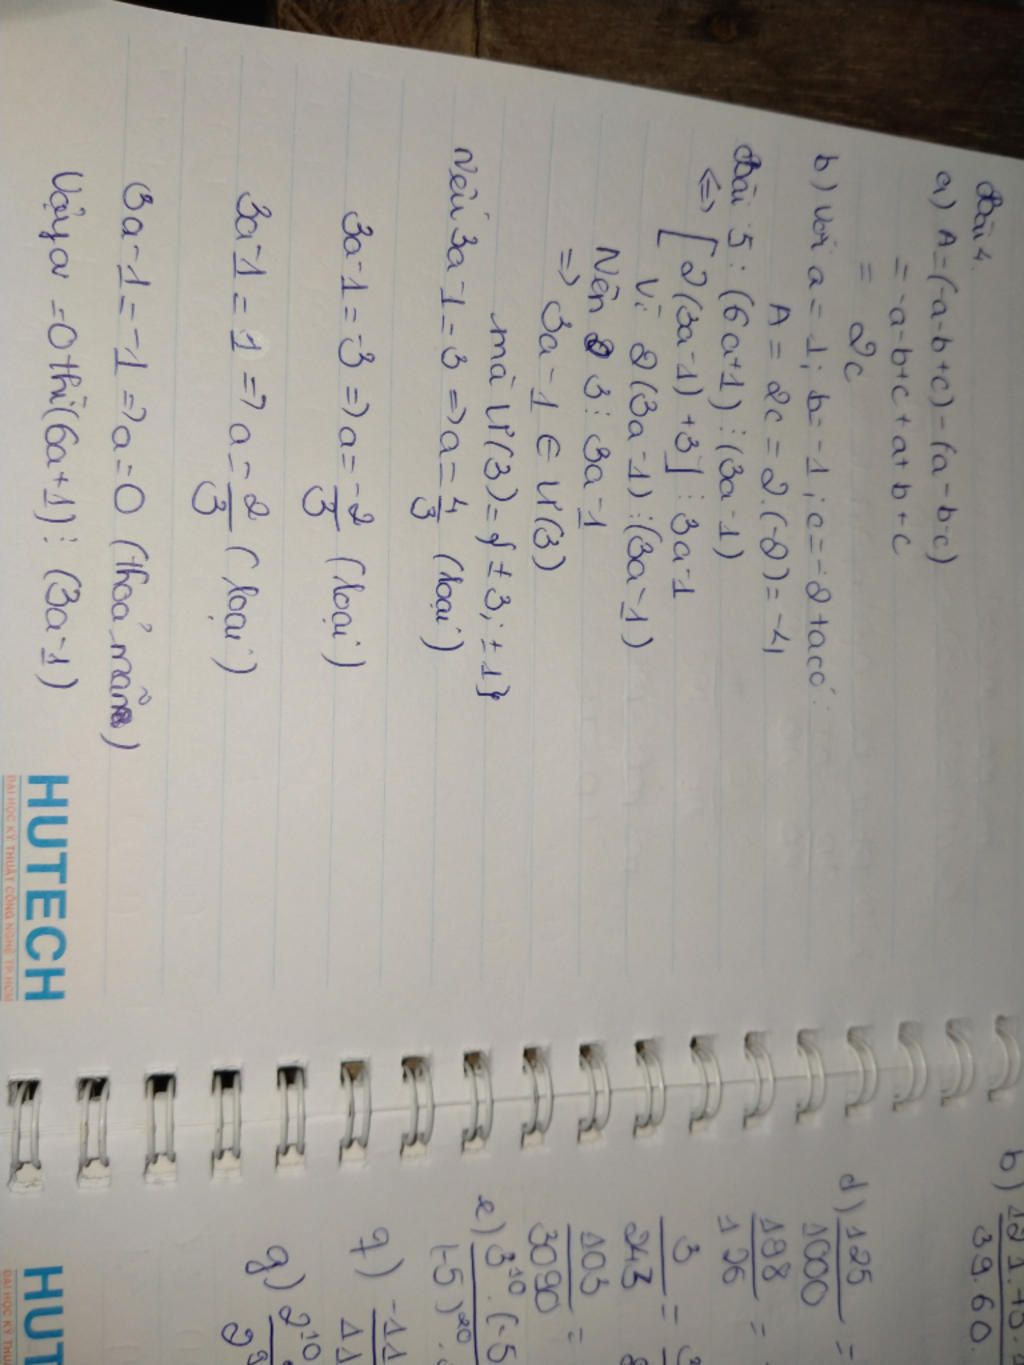 Bài 4.
a) A=(-a-b+c)-(a-b-c)
= -a-b+c+a+b+c
= 2c
b) Với a=1; b=-1; c=-2 ta có:
A=2c=2.(-2)=-4
Bài 5: (6a+1)⋮(3a-1)
<=> [2(3a-1)+3]⋮3a-1
Vì 2(3a-1)⋮(3a-1)
Nên 3⋮3a-1
=> 3a-1 ∈ Ư(3)
mà Ư(3)={±3;±1}
Nếu 3a-1=3 => a=4/3 (loại)
3a-1=-3 => a=-2/3 (loại)
3a-1=1 => a=2/3 (loại)
3a-1=-1 => a=0 (thoả mãn)
Vậy a=0 thì (6a+1)⋮(3a-1)
HUTECH
ĐẠI HỌC KỸ THUẬT CÔNG NGHỆ TP.HCM
b)
39.60.
d) 125/1000 =
198/126 =
3/243 =
103/3090 =
e) 3^10.(-5
(-5)^20.
f) -11
g) 2^10
HUT